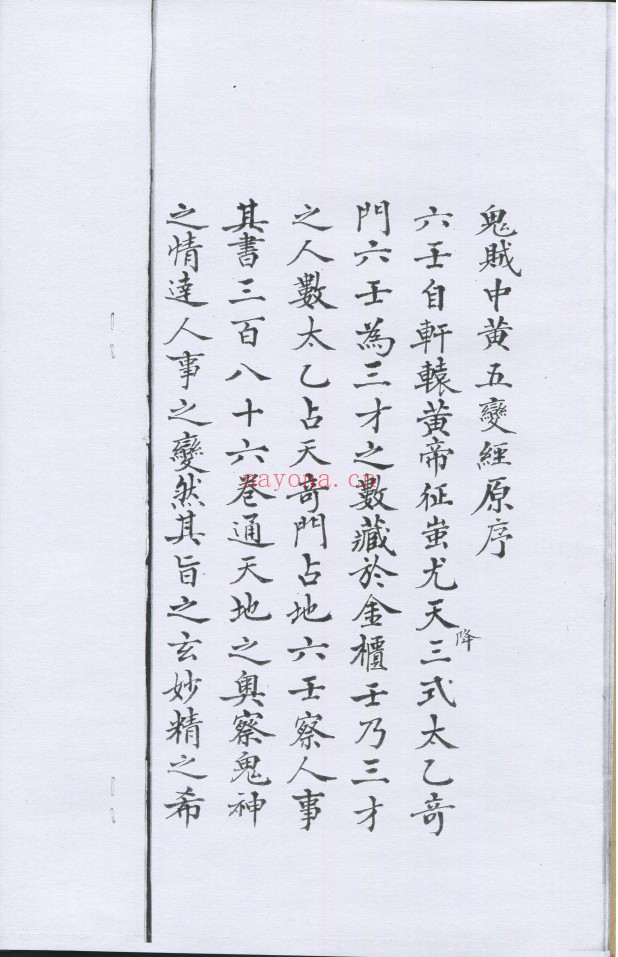 鬼賊中黄五變經原序
六壬自軒轅黄帝征蚩尤天降三式太乙竒
門六壬為三才之數藏於金櫃壬乃三才
之人數太乙占天竒門占地六壬察人事
其書三百八十六巻通天地之奥察鬼神
之情達人事之變然其旨之玄妙精之希
nayona.cn